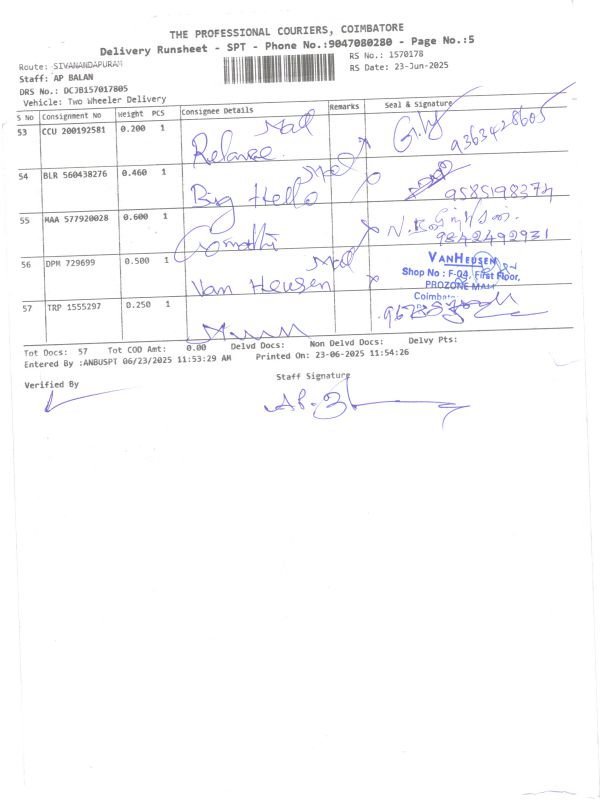 THE PROFESSIONAL COURIERS, COIMBATORE
Delivery Runsheet - SPT - Phone No.:9047080280 - Page No.:5
Route: SIVANANDAPURAM
RS No.: 1570178
Staff: AP BALAN
RS Date: 23-Jun-2025
DRS No.: DCJB157017805
Vehicle: Two Wheeler Delivery
S No Consignment No Weight PCS Consignee Details Remarks Seal & Signature
53 CCU 200192581 0.200 1 Reliance Mall 9363428605
54 BLR 560438276 0.460 1 Big Hello Mall 9585198374
55 MAA 577920028 0.600 1 Gomathi 9842492931
56 DPM 729699 0.500 1 Van Heusen Mall
VANHEUSEN
Shop No : F-04, First Floor,
PROZONE MALL
Coimbatore
57 TRP 1555297 0.250 1
Tot Docs: 57 Tot COD Amt: 0.00 Delvd Docs: Non Delvd Docs: Delvy Pts:
Entered By :ANBUSPT 06/23/2025 11:53:29 AM Printed On: 23-06-2025 11:54:26
Verified By
Staff Signature